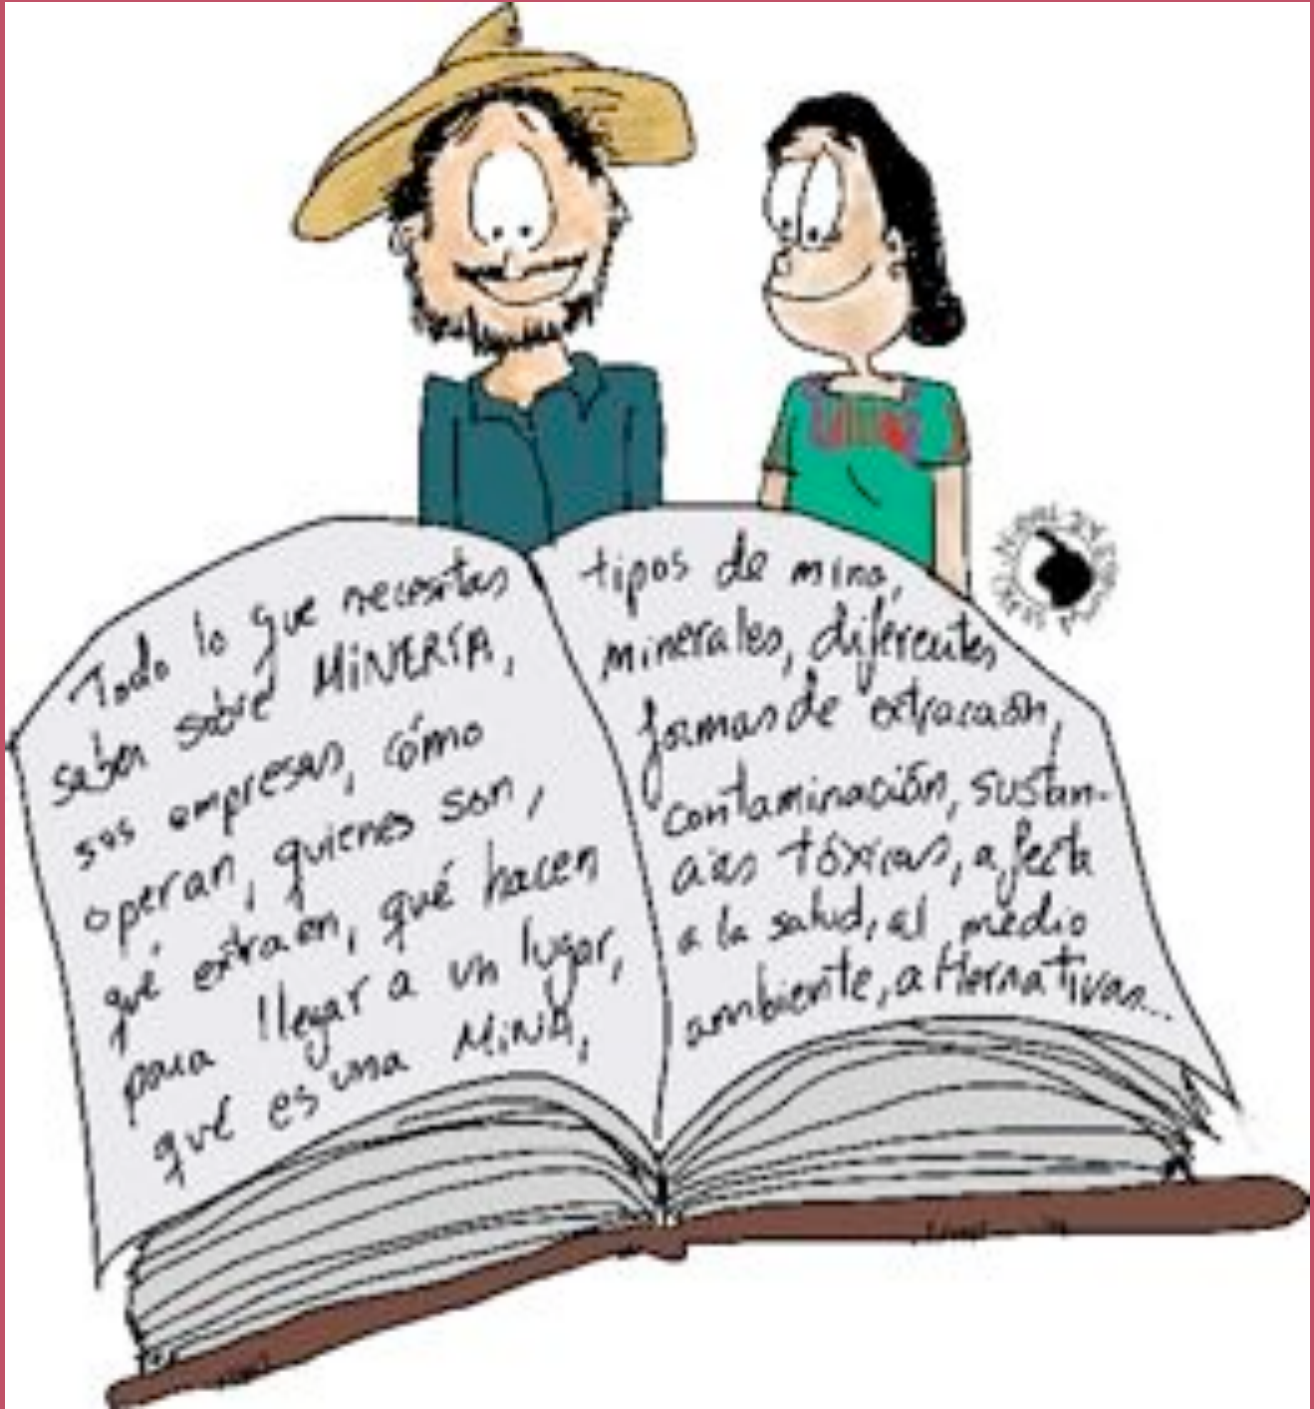 Todo lo que necesitas
saber sobre MINERÍA,
sus empresas, cómo
operan, quienes son,
qué extraen, qué hacen
para llegar a un lugar,
qué es una MINA,
tipos de mina,
minerales, diferentes
formas de extracción,
contaminación, sustan-
cias tóxicas, afecta
a la salud, al medio
ambiente, alternativas...